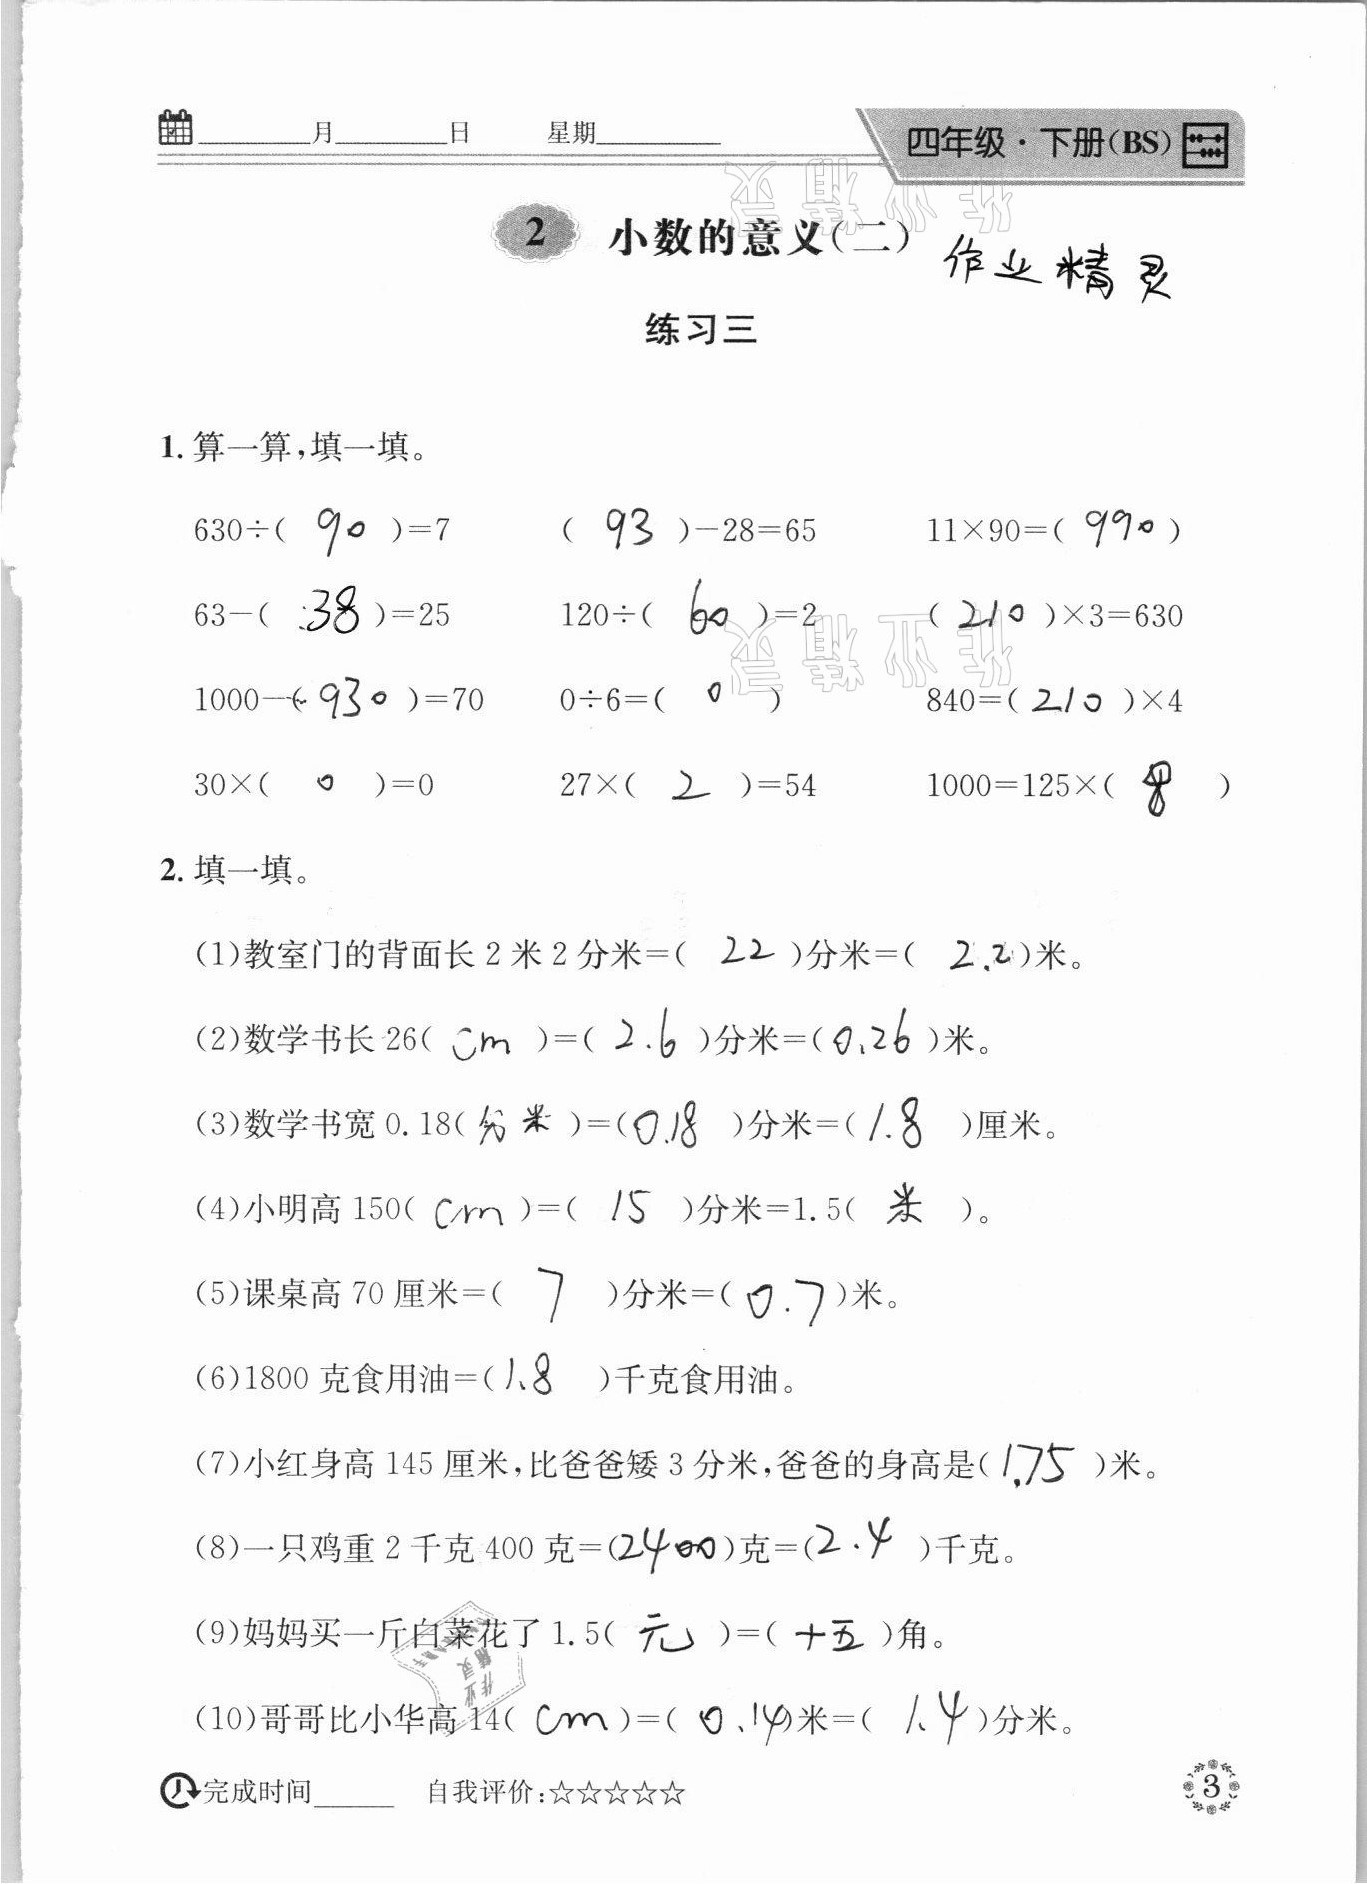 ____月____日 星期____ 四年级·下册(BS)
2 小数的意义(二) 作业精灵
练习三
1. 算一算,填一填。
630÷( 90 )=7 ( 93 )-28=65 11×90=( 990 )
63-( 38 )=25 120÷( 60 )=2 ( 210 )×3=630
1000-( 930 )=70 0÷6=( 0 ) 840=( 210 )×4
30×( 0 )=0 27×( 2 )=54 1000=125×( 8 )
2. 填一填。
(1)教室门的背面长 2 米 2 分米=( 22 )分米=( 2.2 )米。
(2)数学书长 26( cm )=( 2.6 )分米=( 0.26 )米。
(3)数学书宽 0.18( 分米 )=( 0.18 )分米=( 1.8 )厘米。
(4)小明高 150( cm )=( 15 )分米=1.5( 米 )。
(5)课桌高 70 厘米=( 7 )分米=( 0.7 )米。
(6)1800 克食用油=( 1.8 )千克食用油。
(7)小红身高 145 厘米,比爸爸矮 3 分米,爸爸的身高是( 1.75 )米。
(8)一只鸡重 2 千克 400 克=( 2400 )克=( 2.4 )千克。
(9)妈妈买一斤白菜花了 1.5( 元 )=( 十五 )角。
(10)哥哥比小华高 14( cm )=( 0.14 )米=( 1.4 )分米。
完成时间____ 自我评价:☆☆☆☆☆ 3
作业精灵
作业精灵
作业精灵